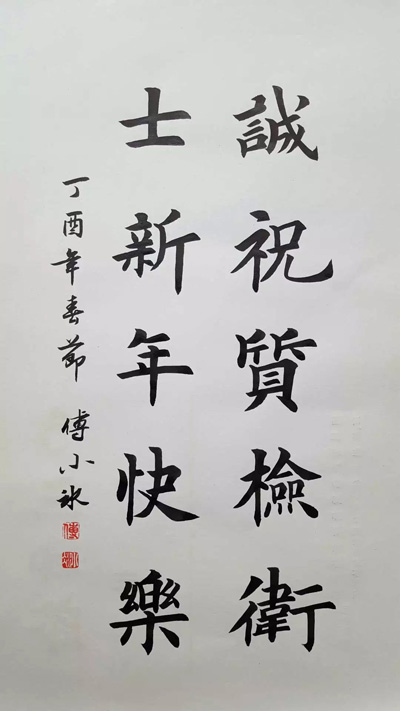 誠祝質檢衛
士新年快樂
丁酉年春節 傅小冰